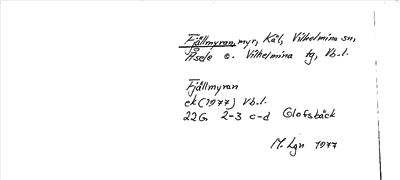 Fjällmyran, myr, Kål, Vilhelmina sn,
Åsele o. Vilhelmina tg, Vb.l.
Fjällmyran
ek (1977) Vb.l.
22G 2-3 c-d Olofsbäck
M. Lgn 1977